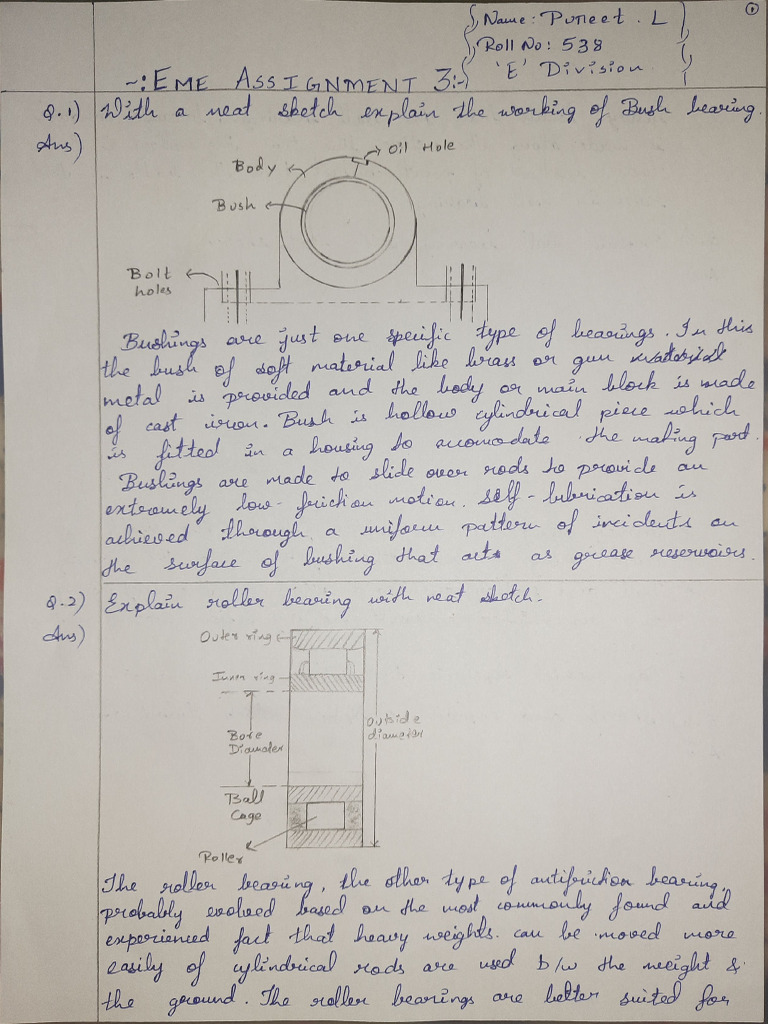 1
Name: Puneet . L
Roll No: 538
'E' Division
~: EME ASSIGNMENT 3:~
Q.1) With a neat sketch explain the working of Bush bearing.
Ans)
Oil Hole
Body
Bush
Bolt
holes
Bushings are just one specific type of bearings. In this
the bush of soft material like brass or gun
metal is provided and the body or main block is made
of cast iron. Bush is hollow cylindrical piece which
is fitted in a housing to accomodate the mating part.
Bushings are made to slide over rods to provide an
extremely low-friction motion. Self-lubrication is
achieved through a uniform pattern of incidents on
the surface of bushing that acts as grease reservoirs.
Q.2) Explain roller bearing with neat sketch.
Ans)
Outer ring
Inner ring
Bore
Diameter
Outside
diameter
Ball
Cage
Roller
The roller bearing, the other type of antifriction bearing,
probably evolved based on the most commonly found and
experienced fact that heavy weights. can be moved more
easily if cylindrical rods are used b/w the weight &
the ground. The roller bearings are better suited for